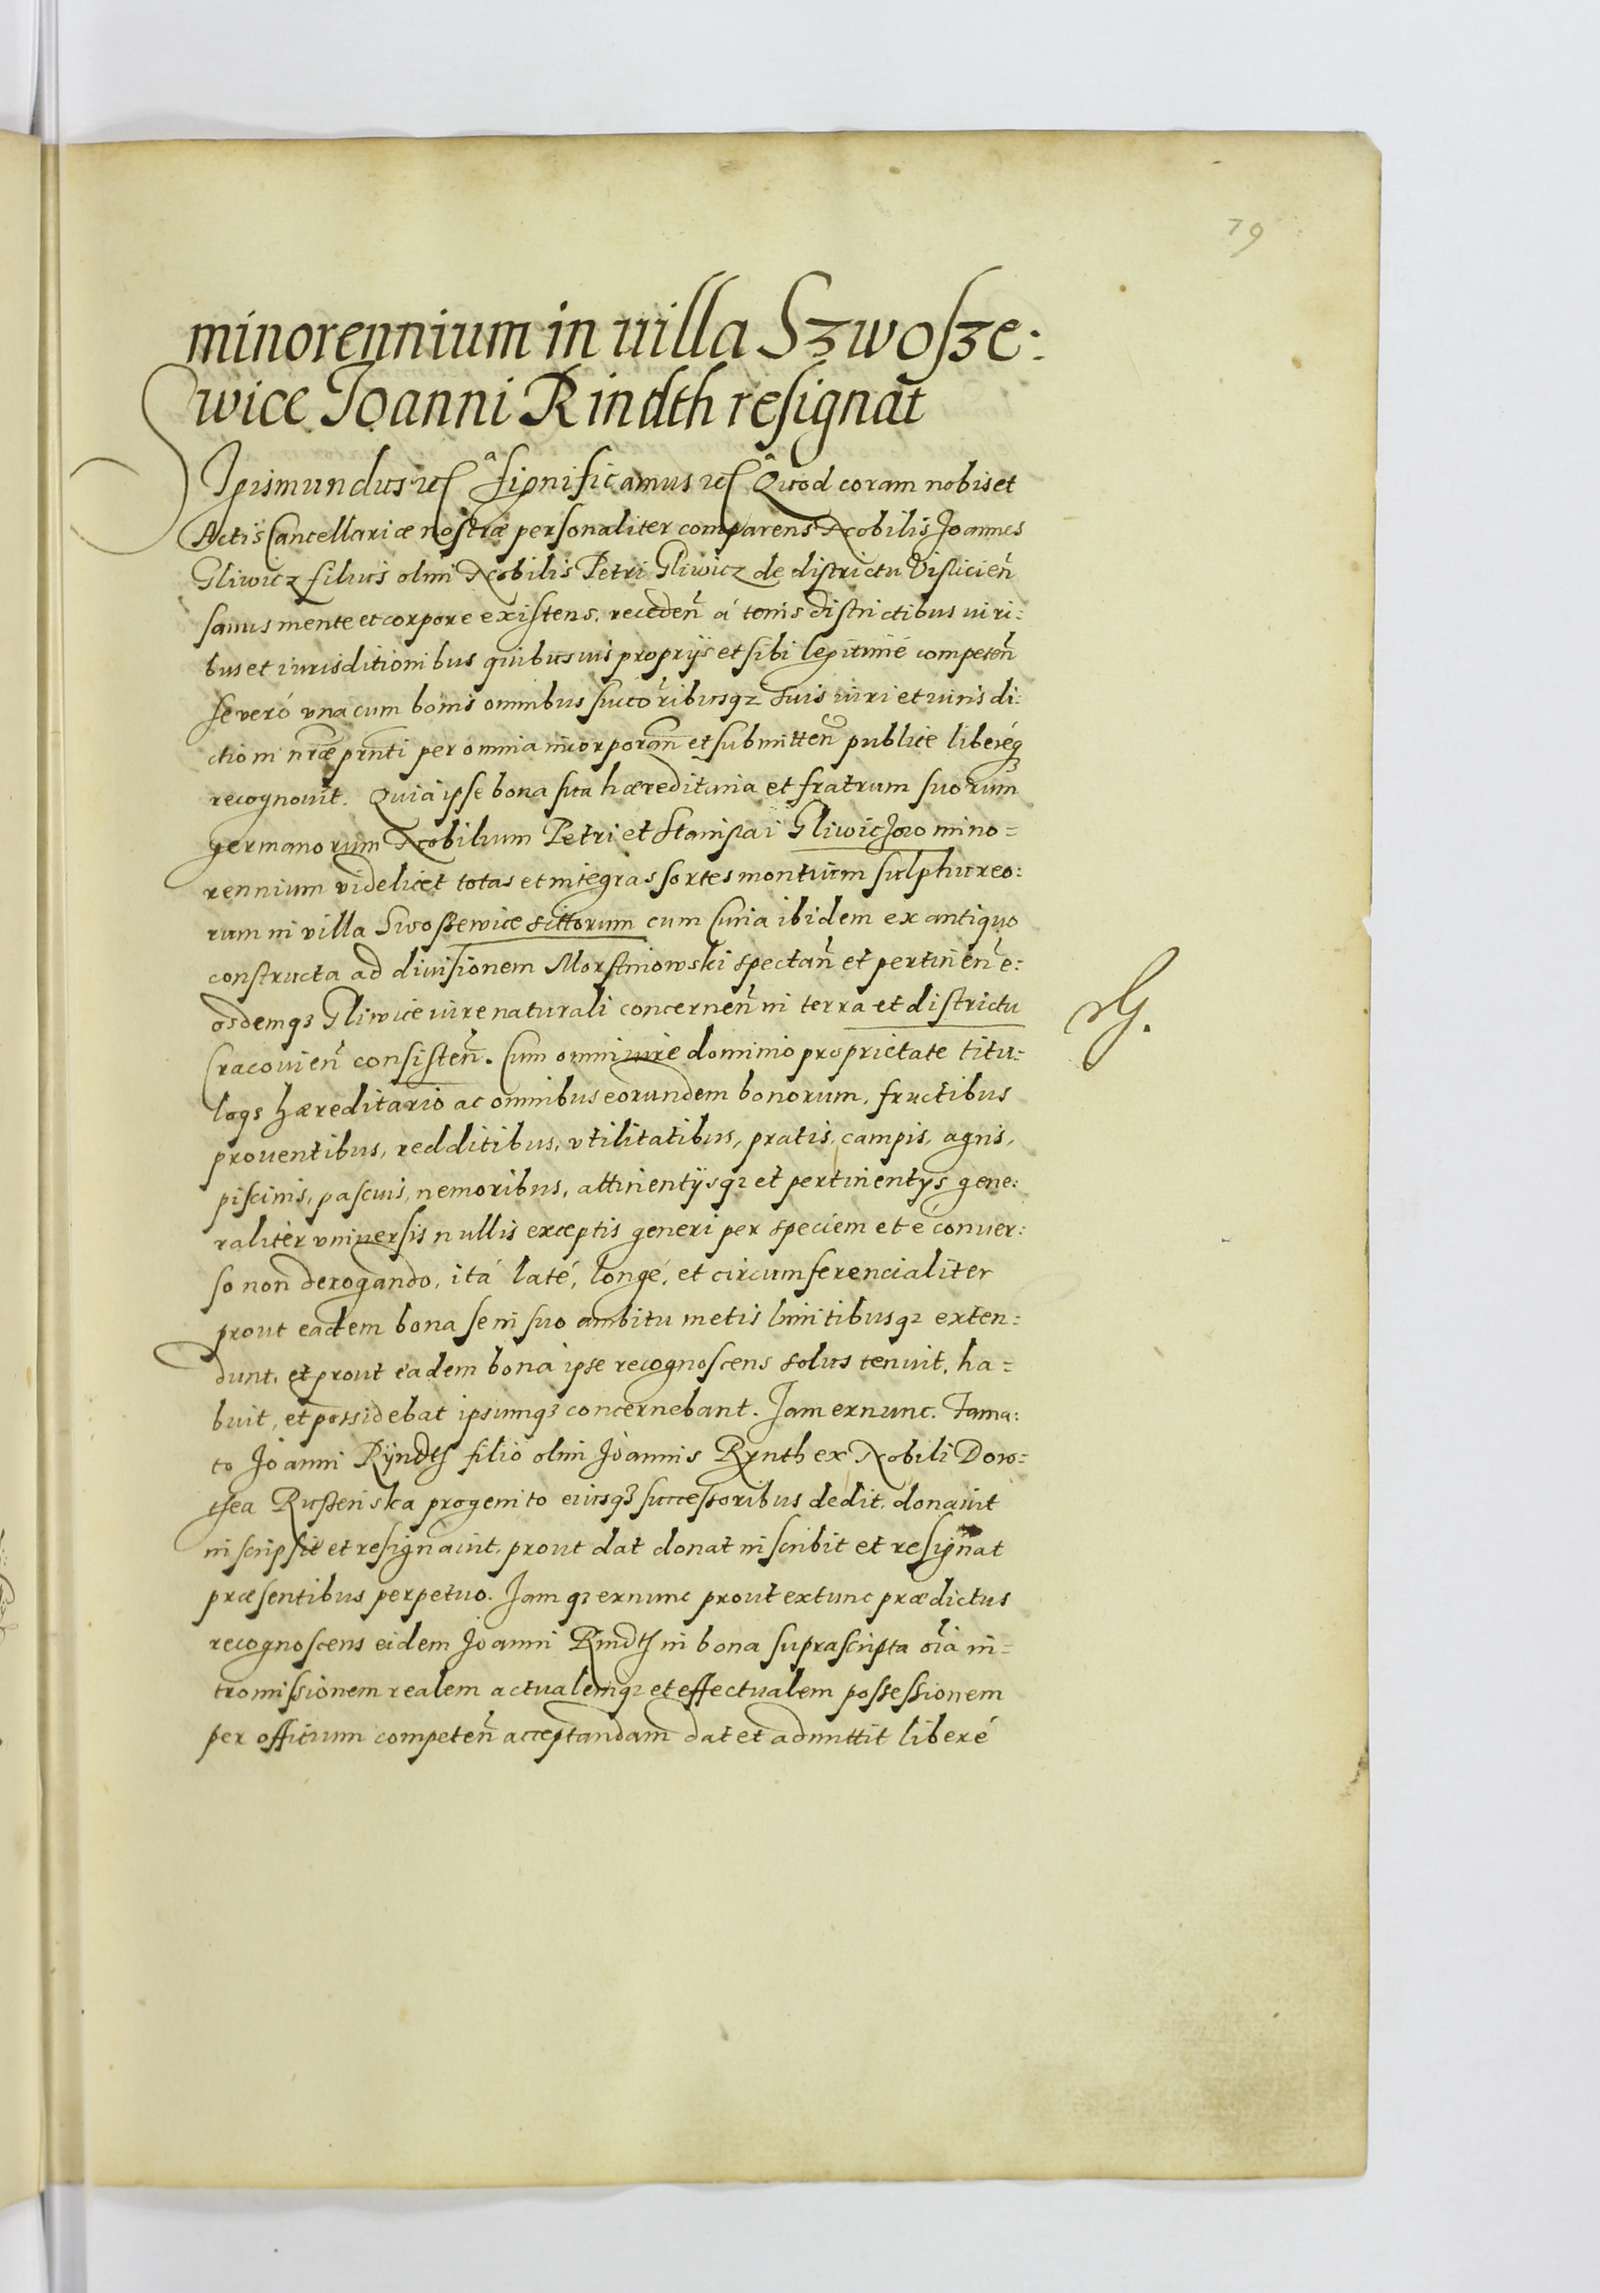 79
minorennium in uilla Szwosze:
wice Joanni Rindth resignat
Sigismundus etc̃ significamus etc̃ Quod coram nobis et
Actis Cancellariæ nostræ personaliter comparens Nobilis Joannes
Gliwicz filius olim Nobilis Petri Gliwicz de districtu Vislicień
sanus mente et corpore existens, receden̄ á terris districtibus iuri:
bus et iurisditionibus quibusuis proprijs et sibi legitimé competen̄
se veró vna cum bonis omnibus succ̄oribusqz suis iuri et iuris di:
ctioni nr̄æ prn̄ti per omnia incorporan̄ et submitten̄ publice liberéqz
recognouit. Quia ipse bona sua hæreditaria et fratrum suorum
germanorum Nobilium Petri et Stanislai Gliwiczow mino=
rennium videlicet totas et integras sortes montium sulphureo:
rum in villa Swossewice sittorum cum Curia ibidem ex antiquo
constructa ad diuisionem Morstiniowski spectan̄ et pertinen̄ e:
osdemqz Gliwice iure naturali concernen̄ in terra et districtu
Cracouien̄ consisten̄. Cum omni iure dominio proprietate titu:
loqz hæreditario ac omnibus eorundem bonorum, fructibus
prouentibus, redditibus, vtilitatibus, pratis, campis, agris,
piscinis, pascuis, nemoribus, attinentijsqz et pertinentys gene:
raliter vniuersis nullis exceptis generi per speciem et é conuer:
so non derogando, itá laté, longé, et circumferencialiter
prout eadem bona se in suo ambitu metis limitibusqz exten:
dunt, et prout eadem bona ipse recognoscens solus tenuit, ha=
buit, et possidebat ipsumqz concernebant. Jam exnunc. Fama:
to Joanni Ryndth filio olim Joannis Rynth ex Nobili Doro:
thea Russenska progenito eiusqz successoribus dedit, donauit
inscripsit et resignauit, prout dat donat inscribit et resignat
præsentibus perpetuo. Jam qz exnunc prout extunc prædictus
recognoscens eidem Joanni Rindth in bona suprascripta oīa in=
tromissionem realem actualemqz et effectualem possessionem
per officium competen̄ acceptandam dat et admittit liberé